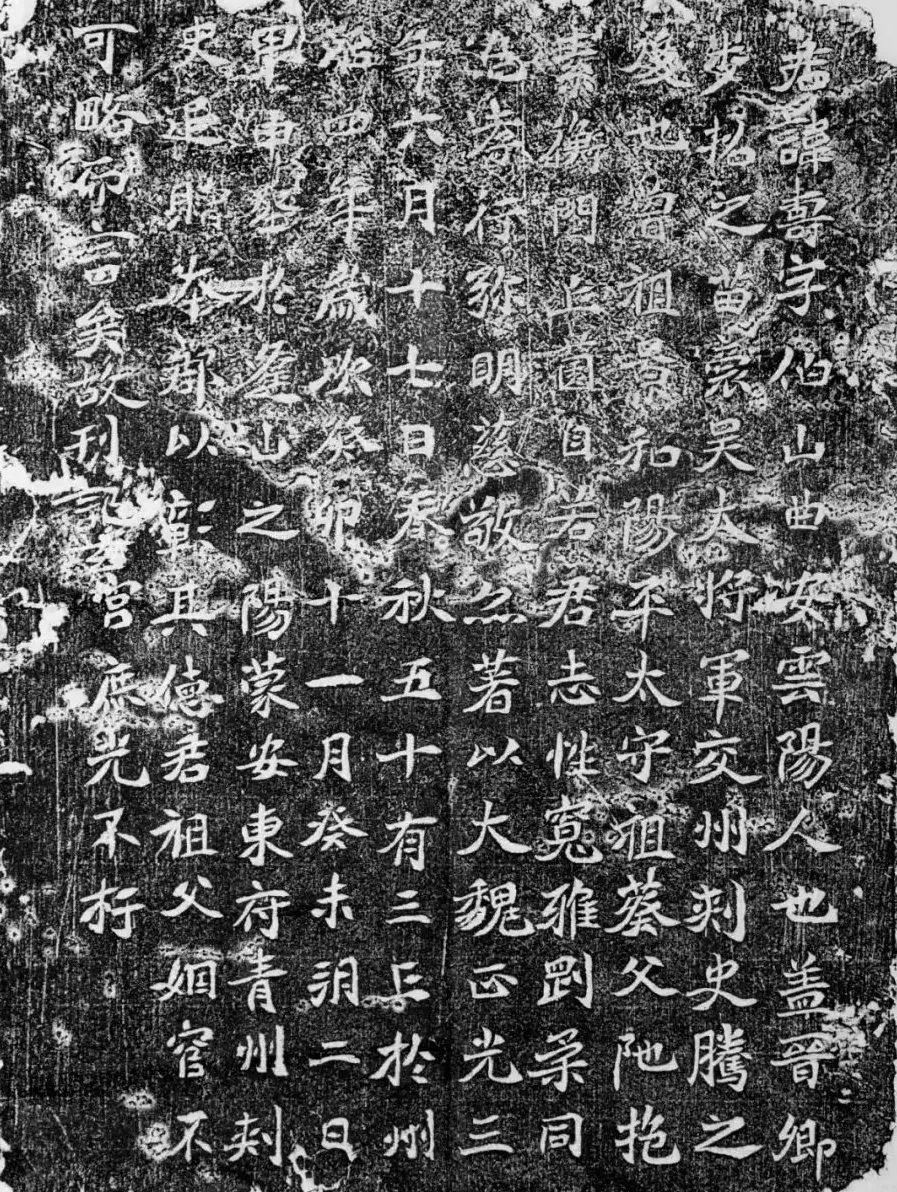 君諱壽字伯山曲安雲陽人也盖晉卿
步招之苗裔吴大將軍交州刾史騰之
後也曾祖景和陽平太守祖葵父阤抱
素衡門丘園自若君志性寬雅剛柔同
孝行弥明慈敬亦著以大魏正光三
年六月十七日春秋五十有三亡於州
館四年歲次癸卯十一月癸未朔二日
甲申葬於逢山之陽蒙安東府青州刾
史追贈本郡以彰其德君祖父姻官不
可略而言矣故刊記冥宮庶光不朽